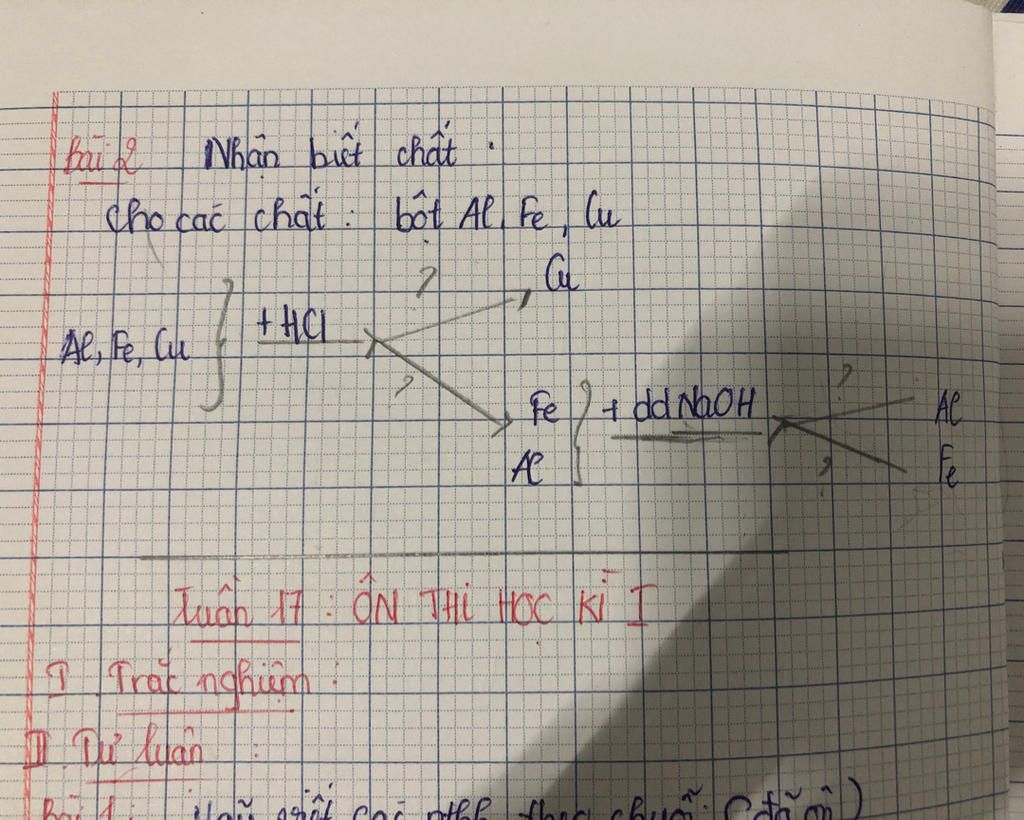 Bài 2 Nhận biết chất.
Cho các chất: bột Al, Fe, Cu
? Cu
Al, Fe, Cu } + HCl
? Fe } + dd NaOH ? Al
Al ? Fe
Tuần 17: ÔN THI HỌC KÌ I
I. Trắc nghiệm:
II. Tự luận:
Bài 1: